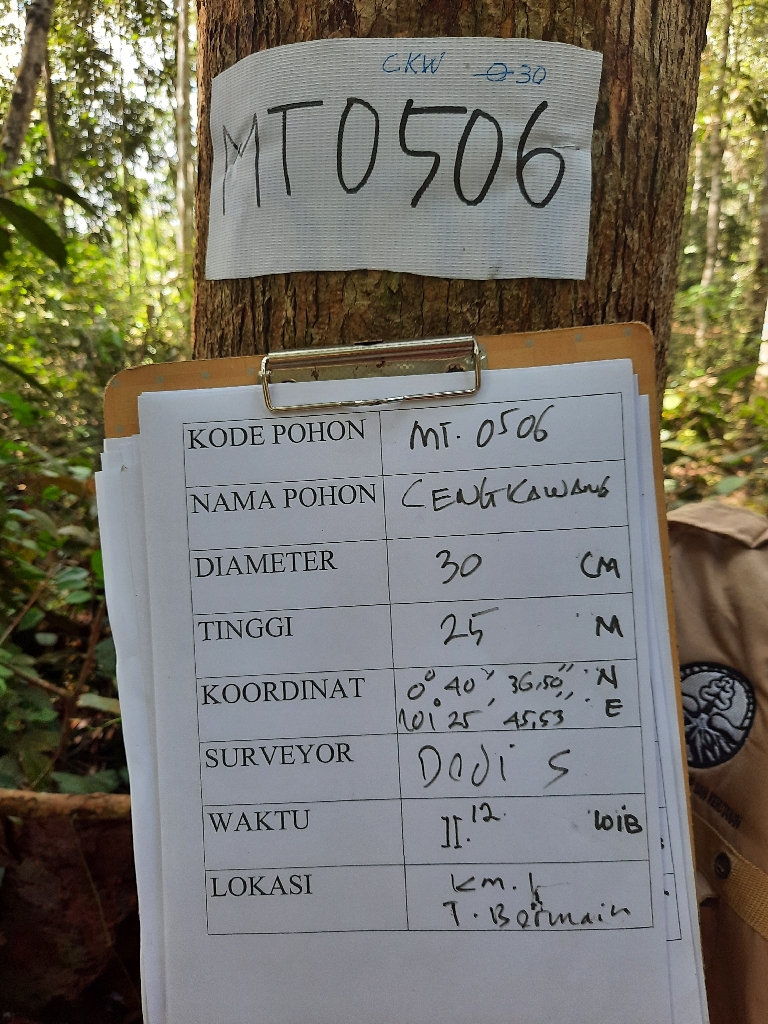 CKW Ꮎ 30
MT0506
KODE POHON MT. 0506
NAMA POHON CENGKAWANG
DIAMETER 30 CM
TINGGI 25 M
KOORDINAT 0° 40' 36,50" N
101° 25' 45,53" E
SURVEYOR Dodi S
WAKTU 11.12 WIB
LOKASI Km.
T. Bermain